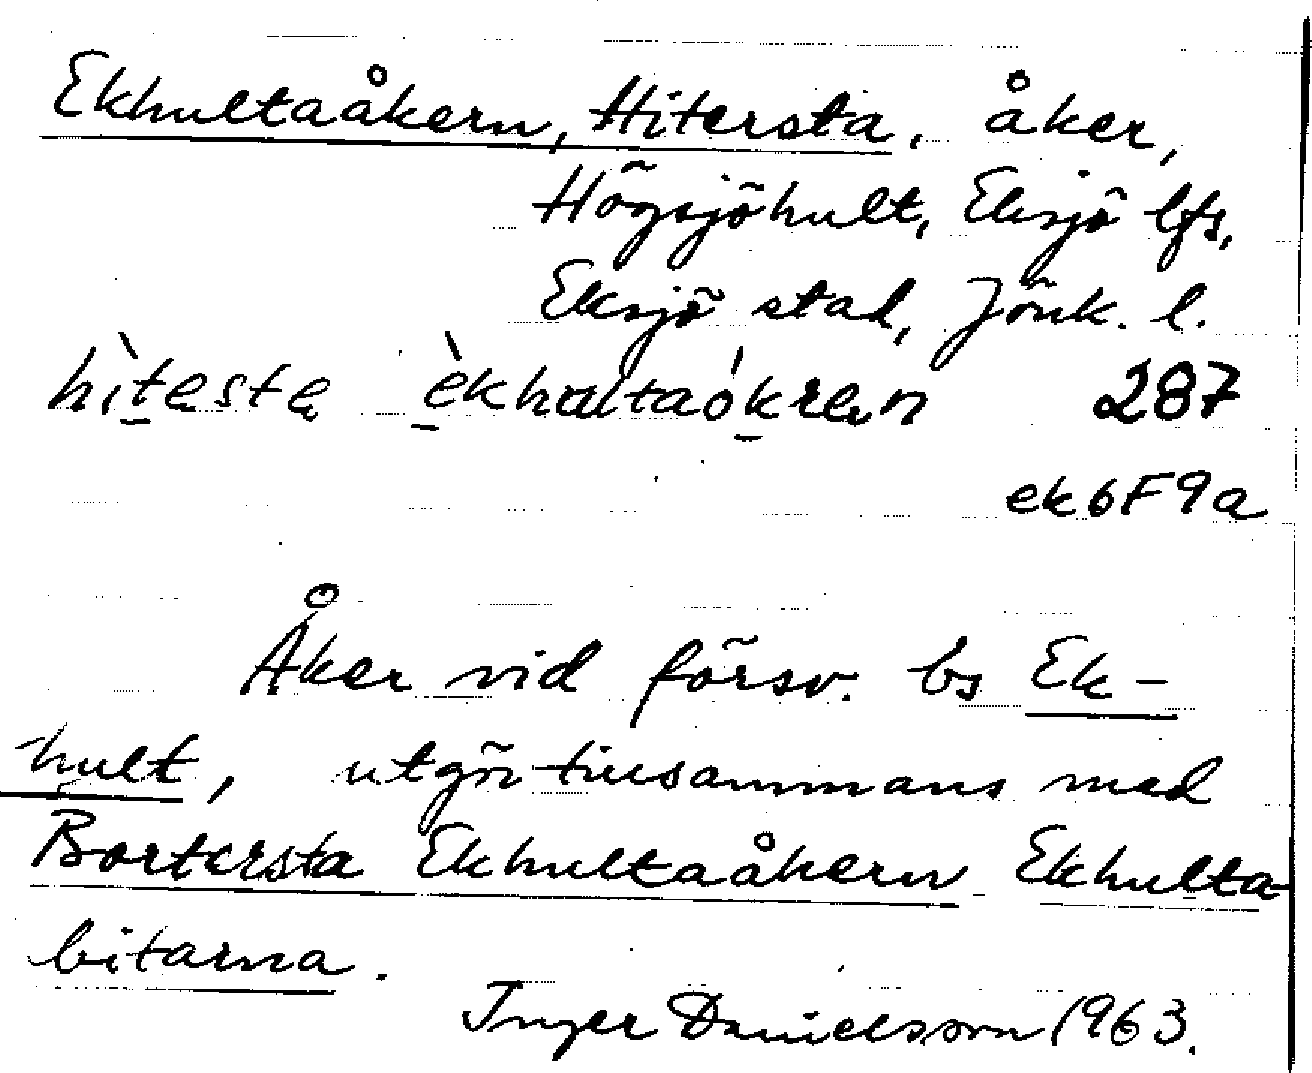 Ekhultaåkern, Hitersta, åker,
Högsjöhult, Eksjö lfs,
Eksjö stad, Jönk. l.
hìtesta èkhultaókren 287
ek6F9a
Åker vid försv. bs Ek-
hult, utgör tillsammans med
Bortersta Ekhultaåkern Ekhulta-
bitarna.
Inger Danielsson 1963.